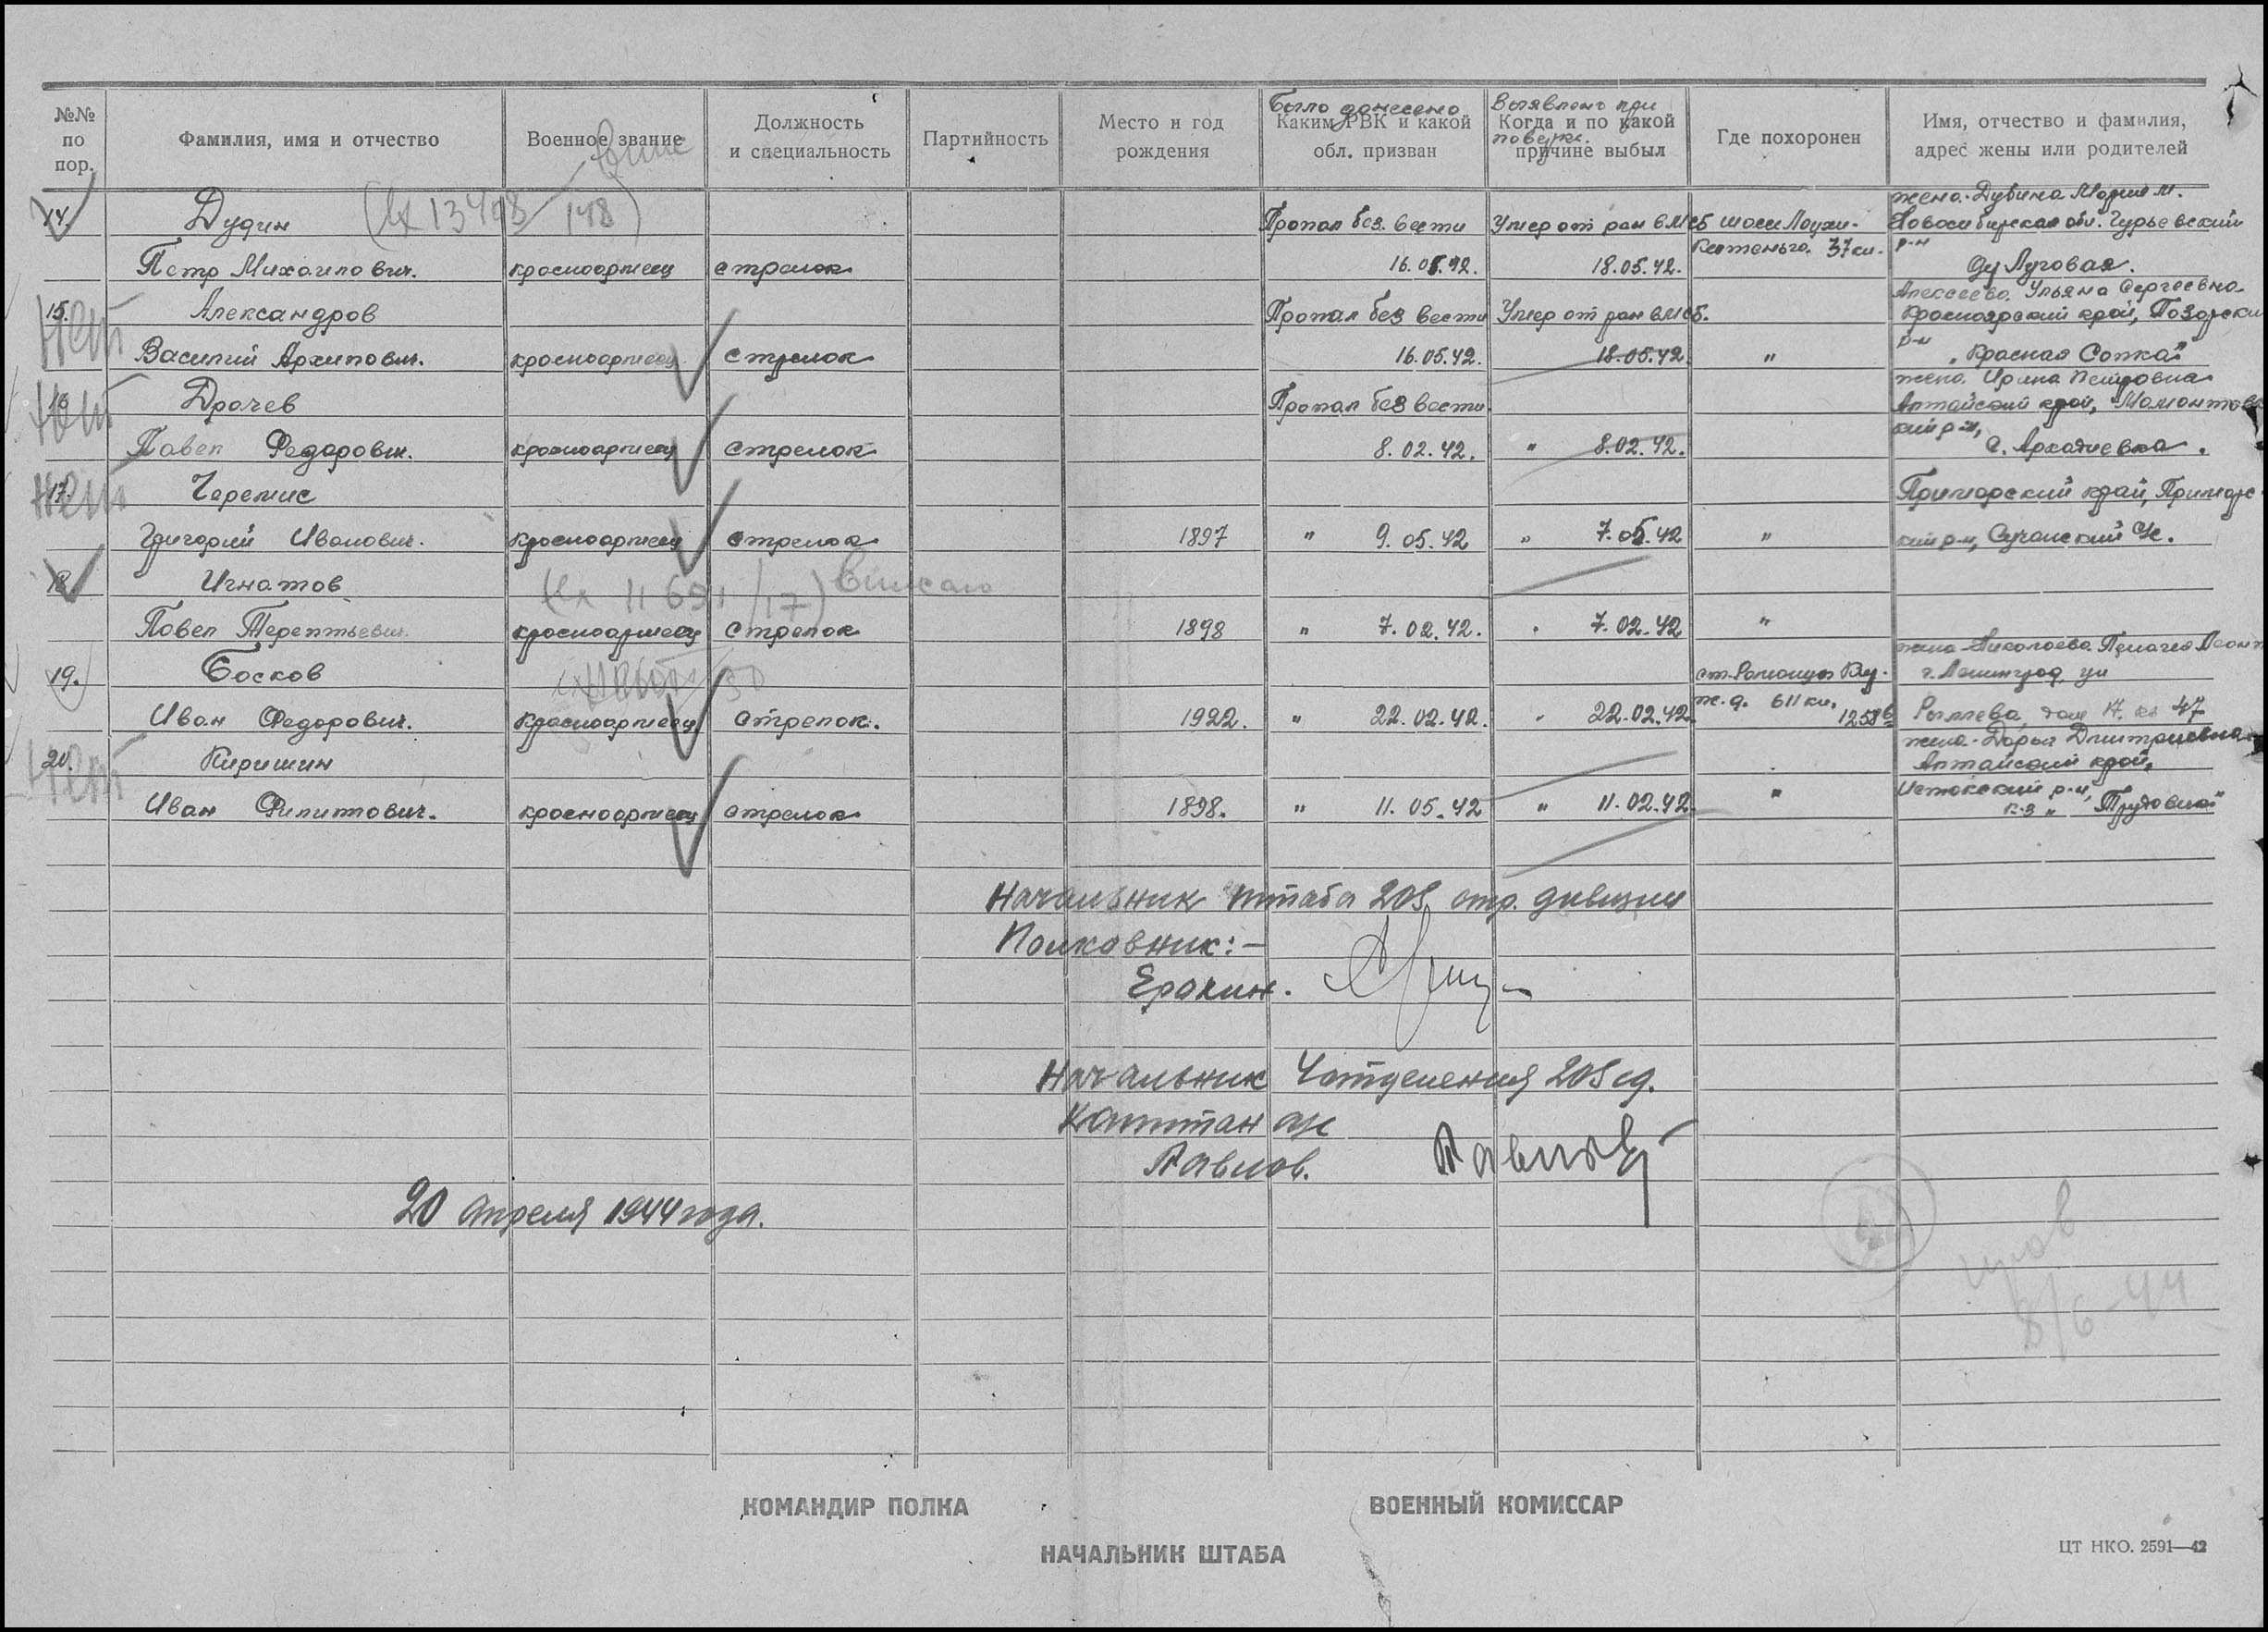 №№ по пор.
Фамилия, имя и отчество
Военное звание
Должность и специальность
Партийность
Место и год рождения
Было донесено
Каким РВК и какой обл. призван
Выявлено при
Когда и по какой причине выбыл
Где похоронен
Имя, отчество и фамилия, адрес жены или родителей
жена-Дубина Мария М.
14. Дудин (вх 13498/148) Пропал без вести Умер от ран в МСБ шоссе Лоухи- Новосибирская обл. Гурьевский
Кестеньга 37 км. р-н
Петр Михайлович. красноармеец стрелок 16.05.42. 18.05.42. Луговая.
Алексеева Ульяна Сергеевна
15. Нет Александров Пропал без вести Умер от ран в МСБ. Красноярский край,
р-н
Василий Архипович. красноармеец стрелок 16.05.42. 18.05.42. " „Красная Сопка"
жена Ирина Петровна
16 Нет Драчев Пропал без вести Алтайский край, Мамонтовс
кий р-н,
Павел Федорович. красноармеец стрелок 8.02.42. " 8.02.42. с. Аркадиевка.
17. Нет Черемис Приморский край,
Григорий Иванович. красноармеец стрелок 1897 " 9.05.42 " 7.05.42 " кий р-н, Сучанский
18 Игнатов
Павел Терентьевич. красноармеец стрелок 1898 " 7.02.42. " 7.02.42 "
19. Босков г. Ленинград ул
Иван Федорович. красноармеец стрелок. 1922. " 22.02.42. " 22.02.42. ж.д. 611 км. Рылеева дом 17. кв 47
жена-Дарья Дмитриевна
20. Нет Киришин Алтайский край,
р-н,
Иван Филиппович. красноармеец стрелок 1898. " 11.05.42 " 11.02.42. " к-з „Трудовик"
Начальник штаба 205 стр. дивизии
Полковник:-
Еракин.
Начальник 4 отделения 205 сд.
Капитан а/с
Павлов.
20 апреля 1944 года.
8/6-44
КОМАНДИР ПОЛКА
ВОЕННЫЙ КОМИССАР
НАЧАЛЬНИК ШТАБА
ЦТ НКО. 2591—42